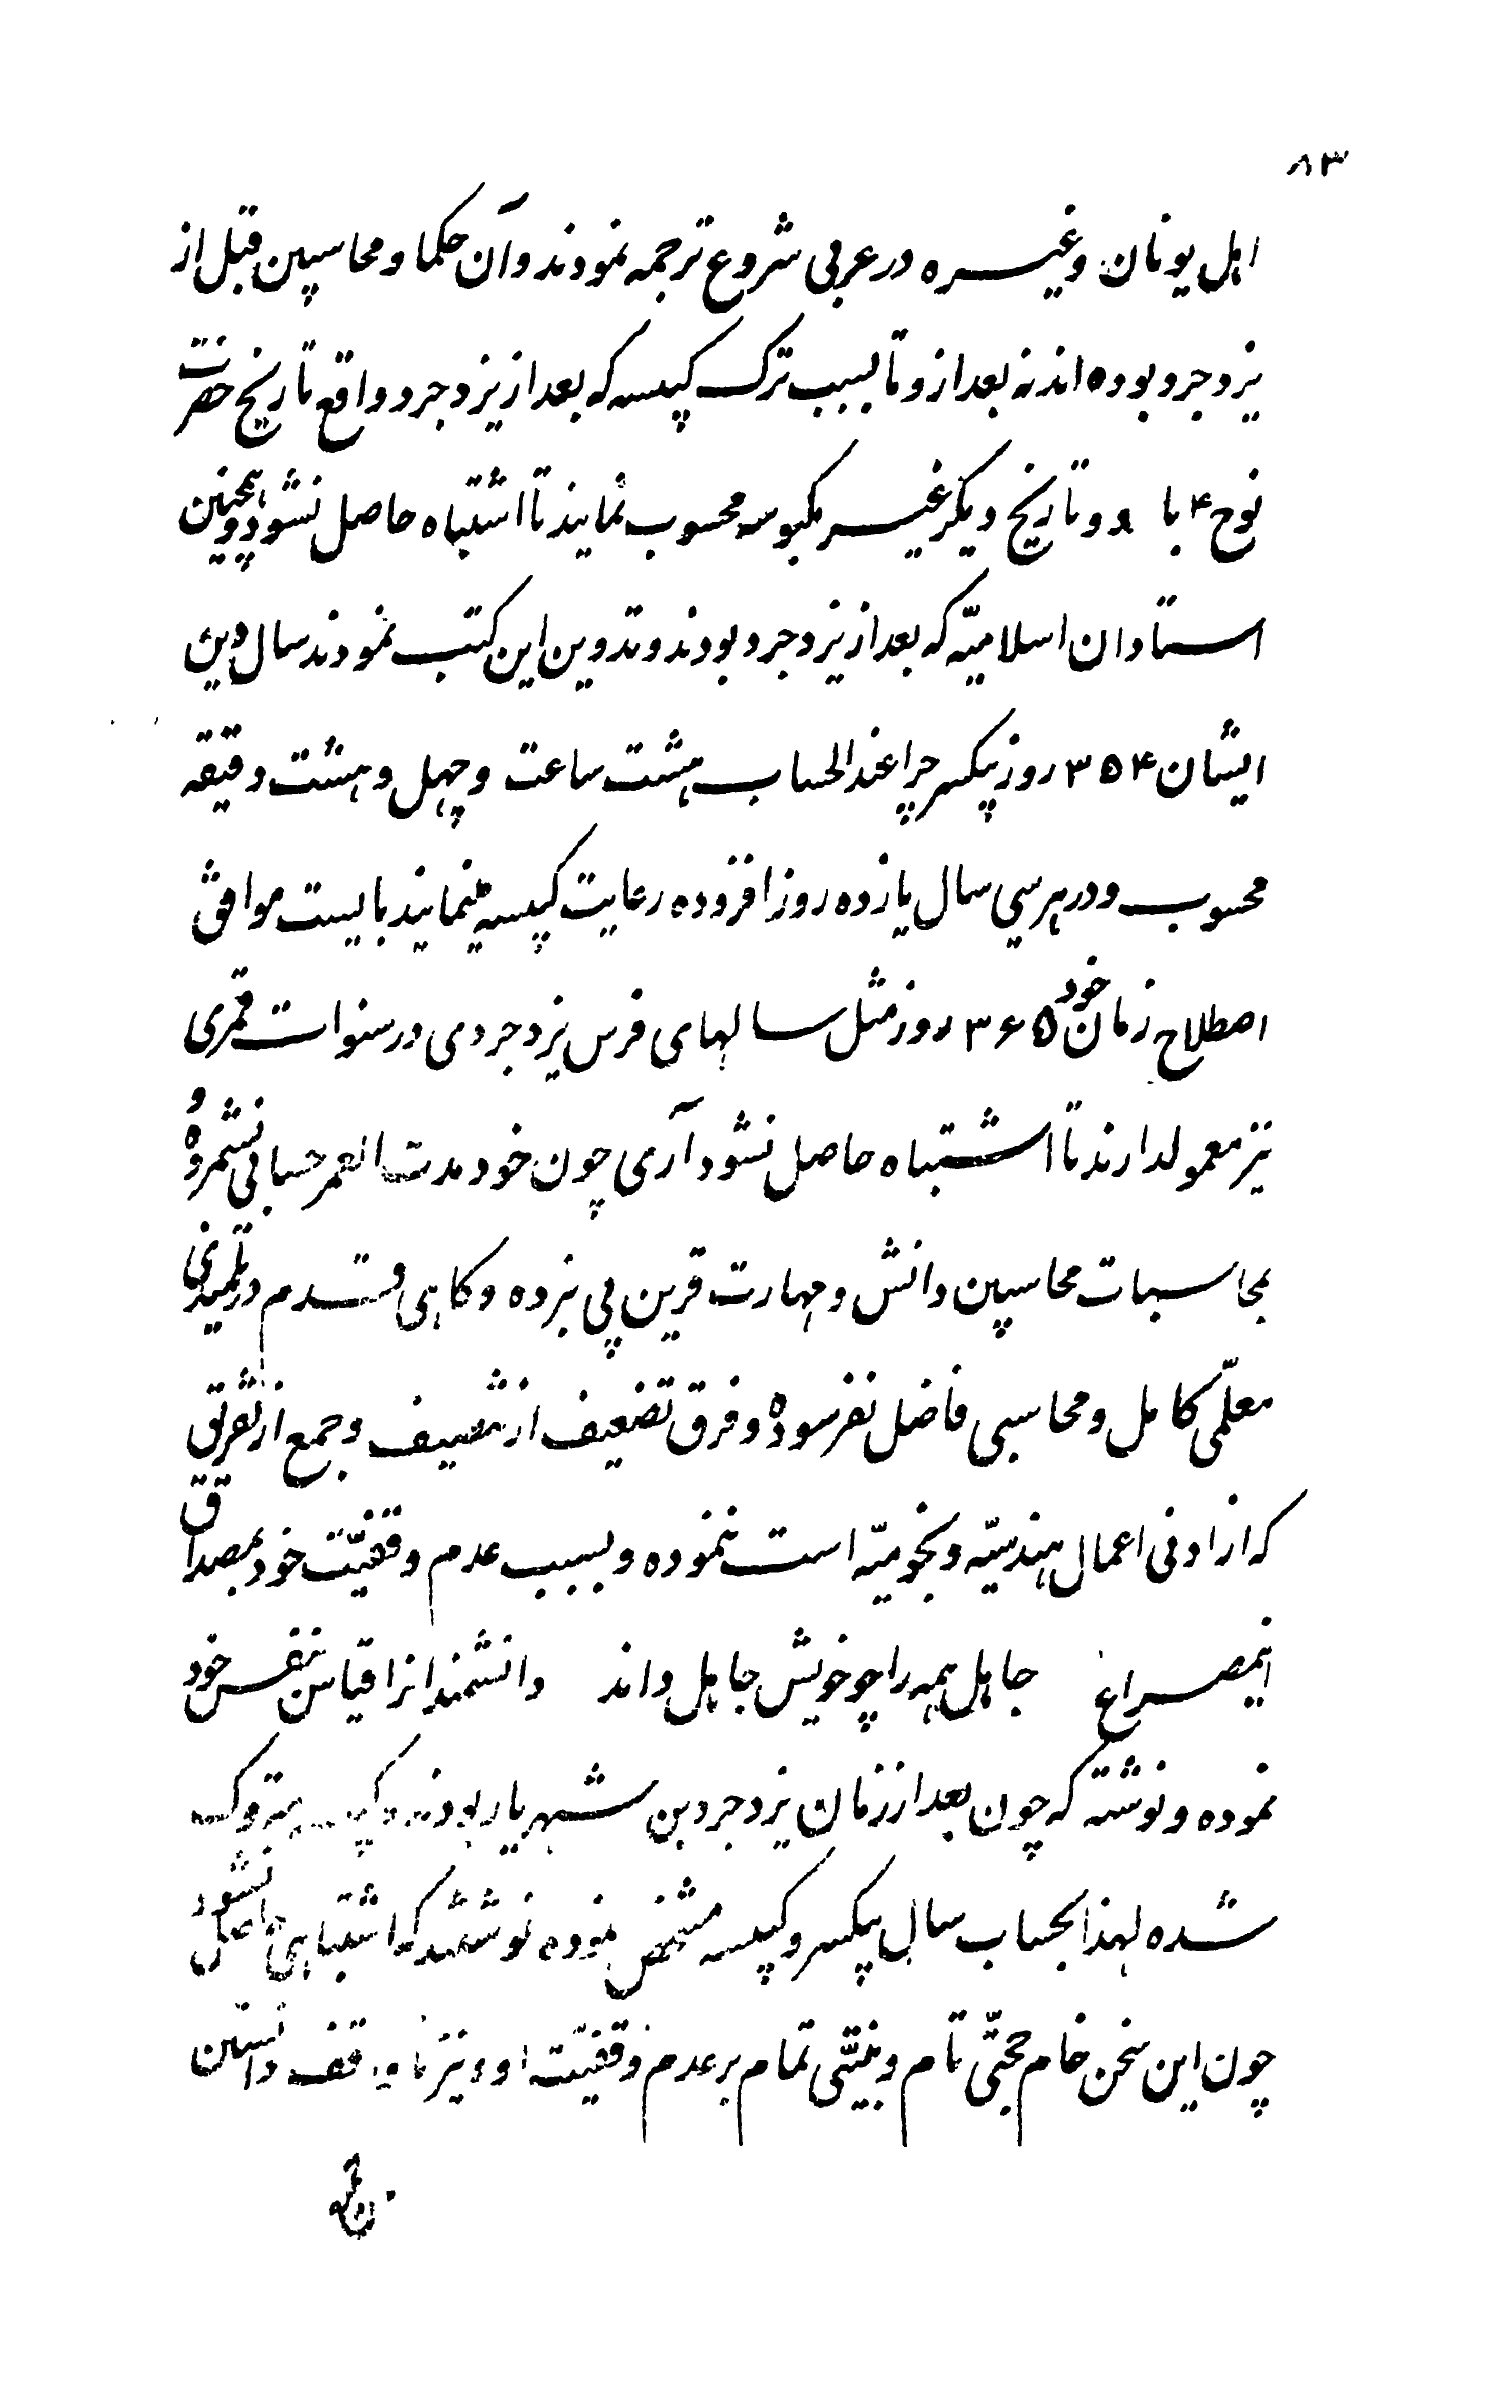 ۸۳
اهل یونان وغیره در عربی شروع ترجمه نمودند وآن حکما ومحاسبین قبل از
یزدجرد بوده اند نه بعد ازو تا بسبب ترک کبیسه که بعد از یزدجرد واقع تاریخ حضرت
نوح ۴ با و تاریخ دیکر غیر مکبوسه محسوب نمایند تا اشتباه حاصل نشود وهمچنین
استادان اسلامیّه که بعد از یزدجرد بودند وتدوین این کتب نمودند سال دین
ایشان ۳۵۴ روز بیکسر چرا عند الحساب هشت ساعت وچهل وهشت دقیقه
محسوب ودر هر سی سال یازده روز افزوده رعایت کبیسه مینمایند بایست موافق
اصطلاح زمان خود ۳۶۵ روز مثل سالهای فرس یزدجردی در سنوات قمری
نیز معمول دارند تا اشتباه حاصل نشود آری چون خود مدت العمر حسابی نشمرده و
بمحاسبات محاسبین دانش ومهارت قرین پی نبرده وکاهی قدم در تلمیذی
معلّمی کامل ومحاسبی فاضل نفرسوده وفرق تضعیف از تنصیف وجمع از تفریق
که از اوفی اعمال هندسیّه ونجومیّه است ننموده وبسبب عدم وقفیّت خود بمصداق
اینمصراع جاهل همه را چو خویش جاهل داند دانشمندانرا قیاس بنفس خود
نموده ونوشته که چون بعد از زمان یزدجرد بن شهریار بودند وکبیسه متروک
شده لهذا بحساب سال بیکسر وکبیسه مشخص نموده نوشتند که اشتباهی حاصل نشود
چون این سخن خام حجّتی تام وبیّنتی تمام بر عدم وقفیّت او ونیز ناواقف دانستن